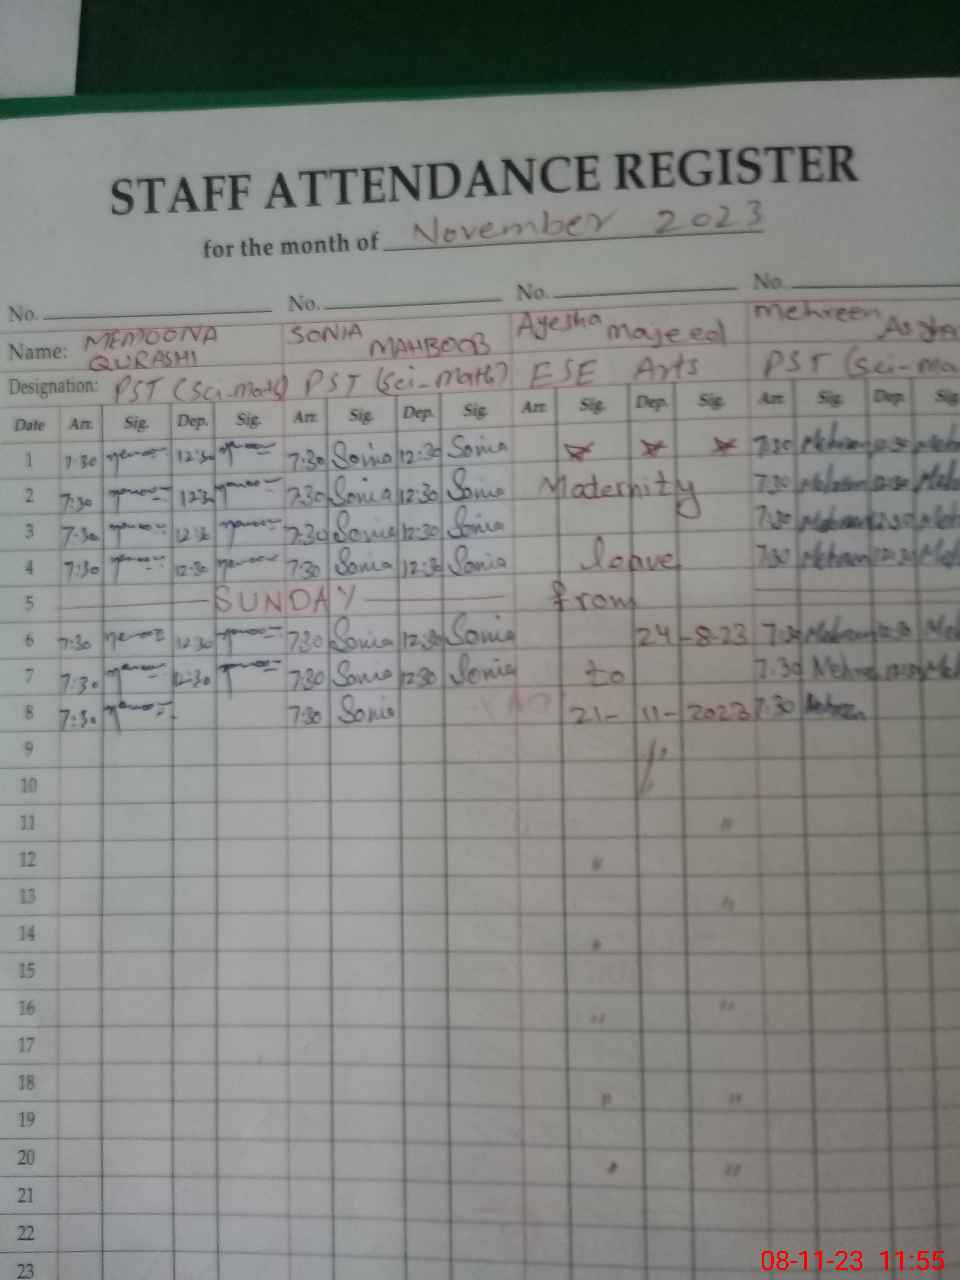 STAFF ATTENDANCE REGISTER
for the month of November 2023
No. No. No. No.
Name: MEMOONA QURASHI SONIA MAHBOOB Ayesha majeed Mehreen
Designation: PST (Sci-math) PST (Sci-math) ESE Arts PST (Sci-ma
Date Arr. Sig. Dep. Sig. Arr. Sig. Dep. Sig. Arr. Sig. Dep. Sig. Arr. Sig. Dep. Sig
1 7:30 12:30 7:30 Sonia 12:30 Sonia 7:30
2 7:30 12:30 7:30 Sonia 12:30 Sonia Maternity 7:30
3 7:30 12:30 7:30 Sonia 12:30 Sonia 7:30
4 7:30 12:30 7:30 Sonia 12:30 Sonia leave 7:30
5 SUNDAY from
6 7:30 12:30 7:30 Sonia 12:30 Sonia 24-8-23 7:30
7 7:30 12:30 7:30 Sonia 12:30 Sonia to 7:30
8 7:30 7:30 Sonia 21-11-2023 7:30
9
10
11 "
12 "
13 "
14 "
15
16 " "
17
18 " "
19
20 " "
21
22
23
08-11-23 11:55